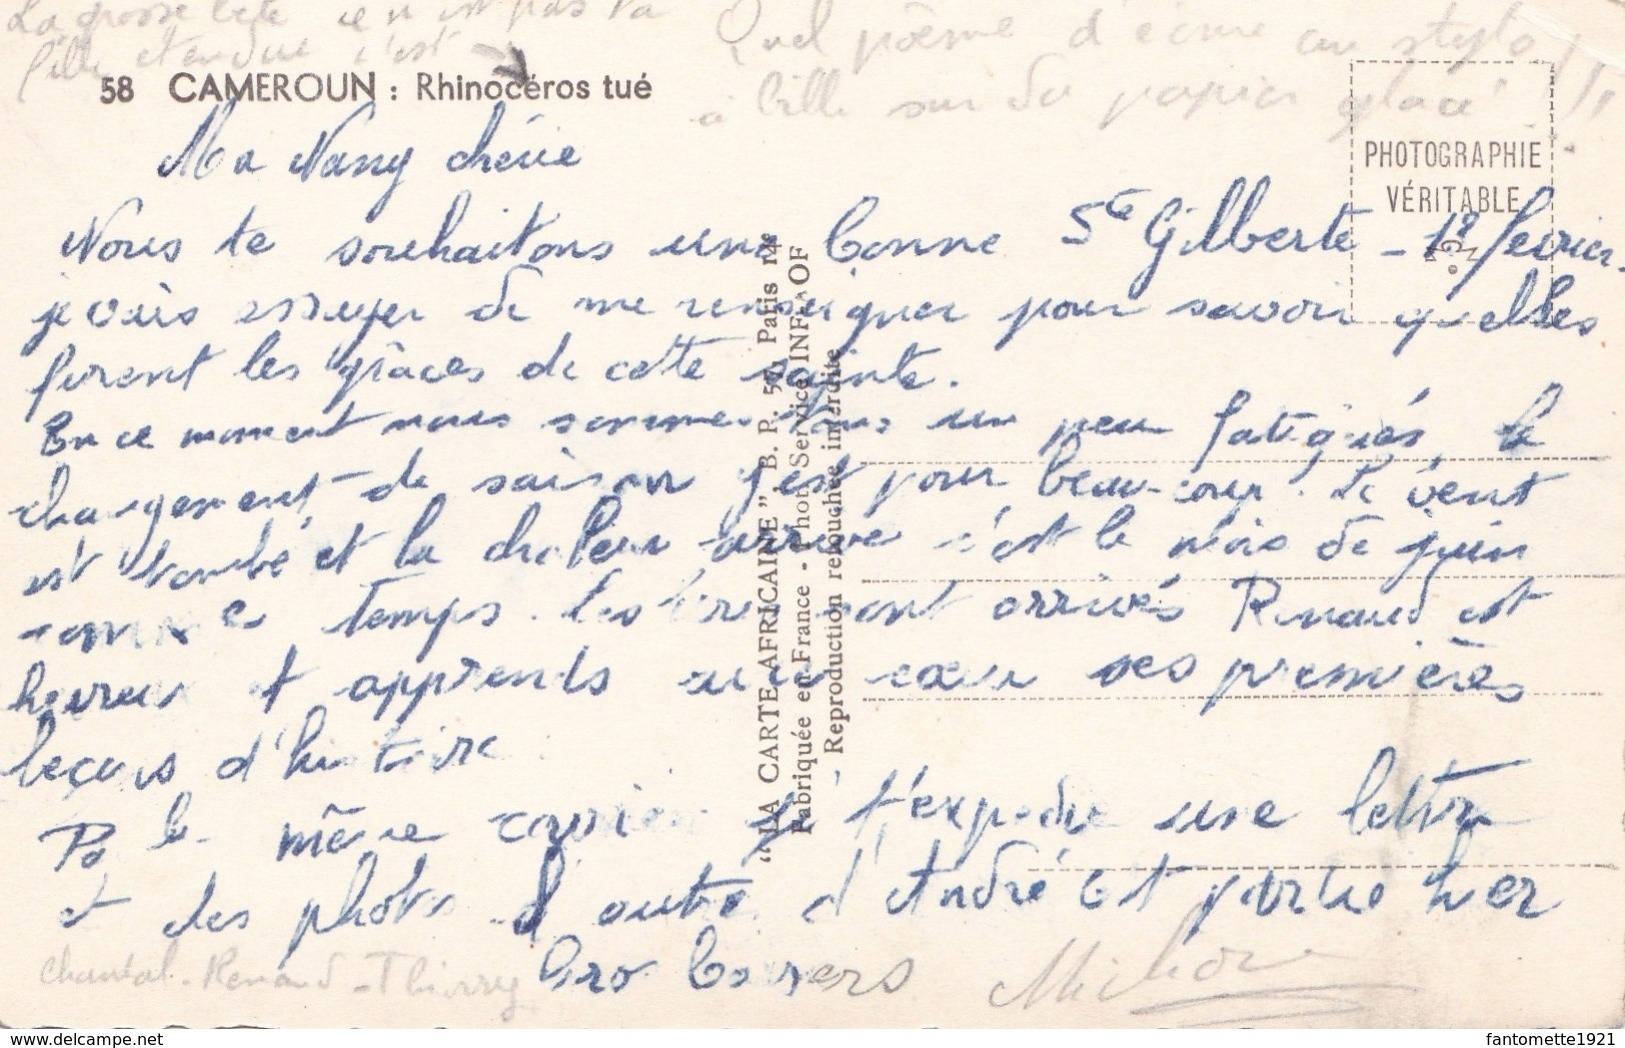 La grosse bête ce n'est pas ta
fille étendue c'est
Quel poème d'écrire au stylo
à bille sur du papier glacé !!!
58 CAMEROUN : Rhinocéros tué
PHOTOGRAPHIE
VÉRITABLE
Ma Nany chérie
Nous te souhaitons une bonne Ste Gilberte - 18 fevrier.
je vais essayer de me renseigner pour savoir quelles
furent les grâces de cette sainte.
En ce moment nous sommes tous un peu fatigués, le
changement de saison y est pour beaucoup. Le vent
est tombé et la chaleur arrive c'est le mois de juin
comme temps. Les livres sont arrivés Renaud est
heureux et apprends avec cœur ses premières
leçons d'histoire.
Par le même courrier je t'expédie une lettre
et des photos d'autre d'André est partie hier
Gros baisers Michou
Chantal - Renaud - Thierry
"LA CARTE AFRICAINE", B. P. 57, Paris 14e
Fabriquée en France - Photo Service INF. AOF
Reproduction retouchée interdite
delcampe.net
fantomette1921